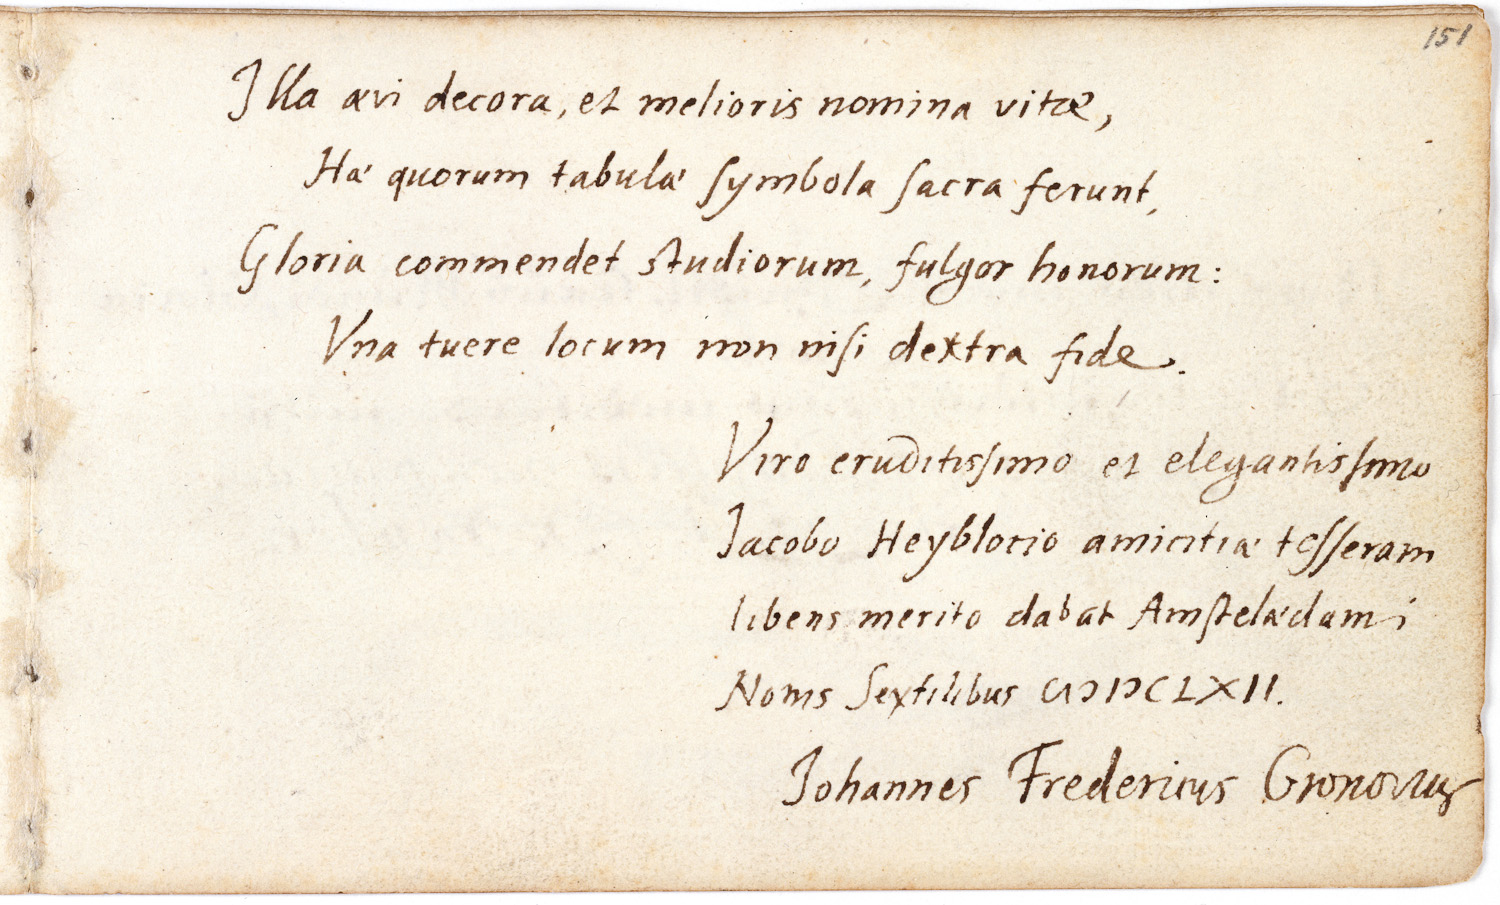 151
Illa ævi decora, et melioris nomina vitæ,
Hæ quorum tabulæ ſymbola ſacra ferunt,
Gloria commendet studiorum, fulgor honorum:
Vna tuere locum non niſi dextra fide.
Viro eruditisſimo et elegantisſimo
Jacobo Heyblocio amicitiæ teſſeram
libens merito dabat Amſtelædami
Nonis Sextilibus CIƆIƆCLXII.
Johannes Fredericus Gronovius